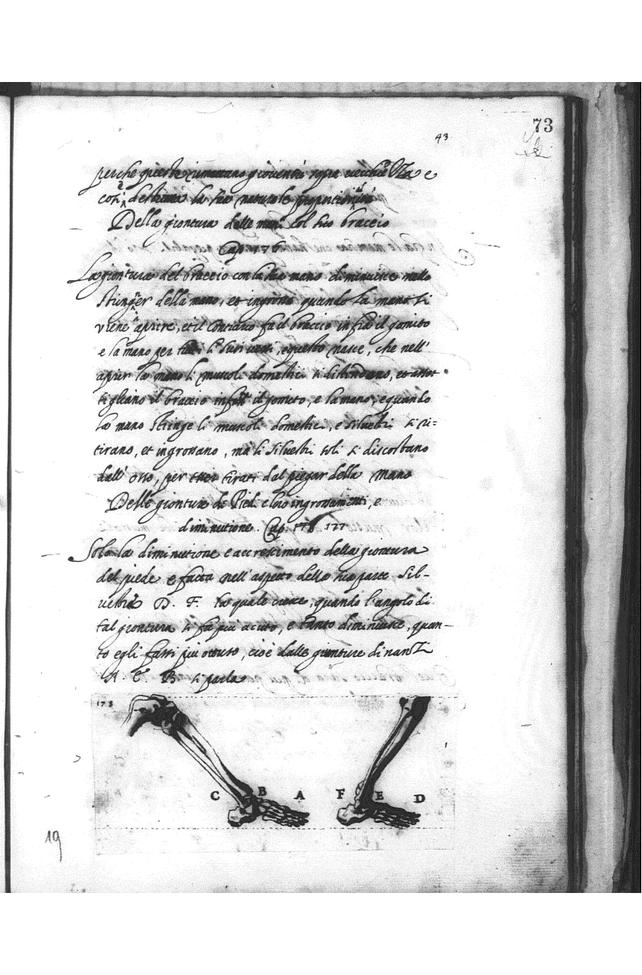 73
43
perche queste rimangano giovenili sopra vecchia Vita e
così destina la sua naturale proportionalità
Della giontura delle mani col suo braccio
Cap. 176
La giontura del braccio con la sua mano diminuisce nello
stringer della mano, et ingrossa quando la mano si
viene a aprire, et il contrario fa il braccio infra il gomito
e la mano per tutti li suoi versi, e questo nasce, che nell'
aprir la mano li muscoli domestici si distendano, et assot-
tigliano il braccio infra il gomito, e la mano, e quando
la mano stringe li muscoli domestici, e silvestri si ri=
tirano, et ingrossano, ma li silvestri soli si discostano
dall' osso, per esser tirati dal piegar della mano
Delle gionture de Piedi e loro ingrossamenti, e
diminutione. Cap. 177
Sola la diminutione e accrescimento della giontura
del piede e fatta nell' aspetto della sua parte sil-
vestra D. E. F. la quale cresce, quando l'angolo di
tal giontura si fa più acuto, e tanto diminuisce, quan-
to egli fassi più ottuso, cioè dalle gionture dinanzi
A. C. B. si parla
173
C B A F E D
19